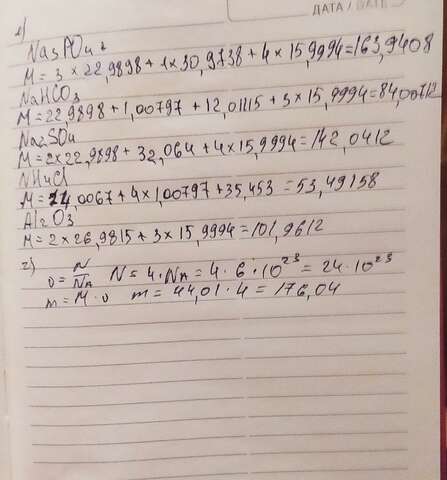 ДАТА / DATE
1)
Na3PO4
M = 3 × 22,9898 + 1 × 30,9738 + 4 × 15,9994 = 163,9408
NaHCO3
M = 22,9898 + 1,00797 + 12,01115 + 3 × 15,9994 = 84,00712
Na2SO4
M = 2 × 22,9898 + 32,064 + 4 × 15,9994 = 142,0412
NH4Cl
M = 14,0067 + 4 × 1,00797 + 35,453 = 53,49158
Al2O3
M = 2 × 26,9815 + 3 × 15,9994 = 101,9612
2)
υ = N/NA N = 4 · NA = 4 · 6 · 10^23 = 24 · 10^23
m = M · υ m = 44,01 · 4 = 176,04